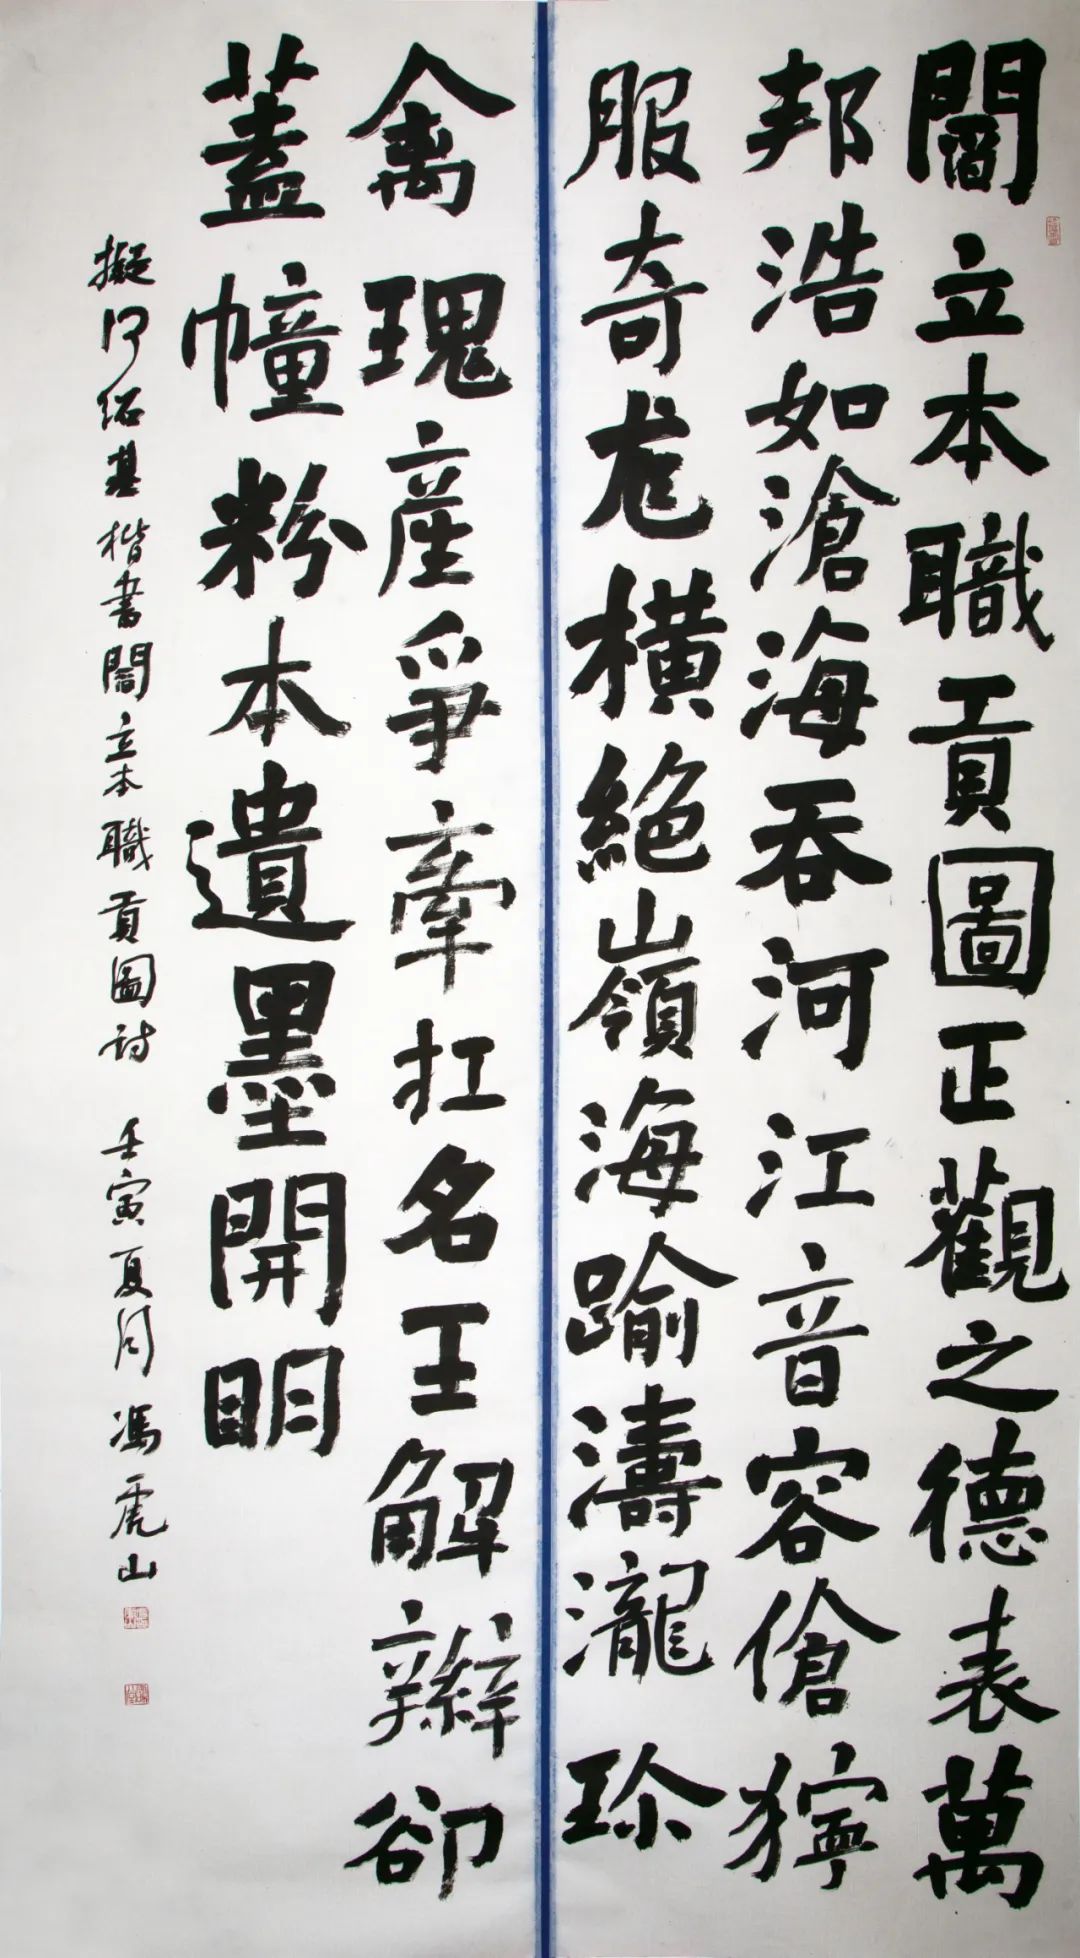 閻立本職貢圖正觀之德表萬
邦浩如滄海吞河江音容傖獰
服奇尨橫絕嶺海踰濤瀧珍
禽瑰產爭牽扛名王解辮卻
蓋幢粉本遺墨開明
擬何紹基楷書閻立本職貢圖詩 壬寅夏月馮虎山